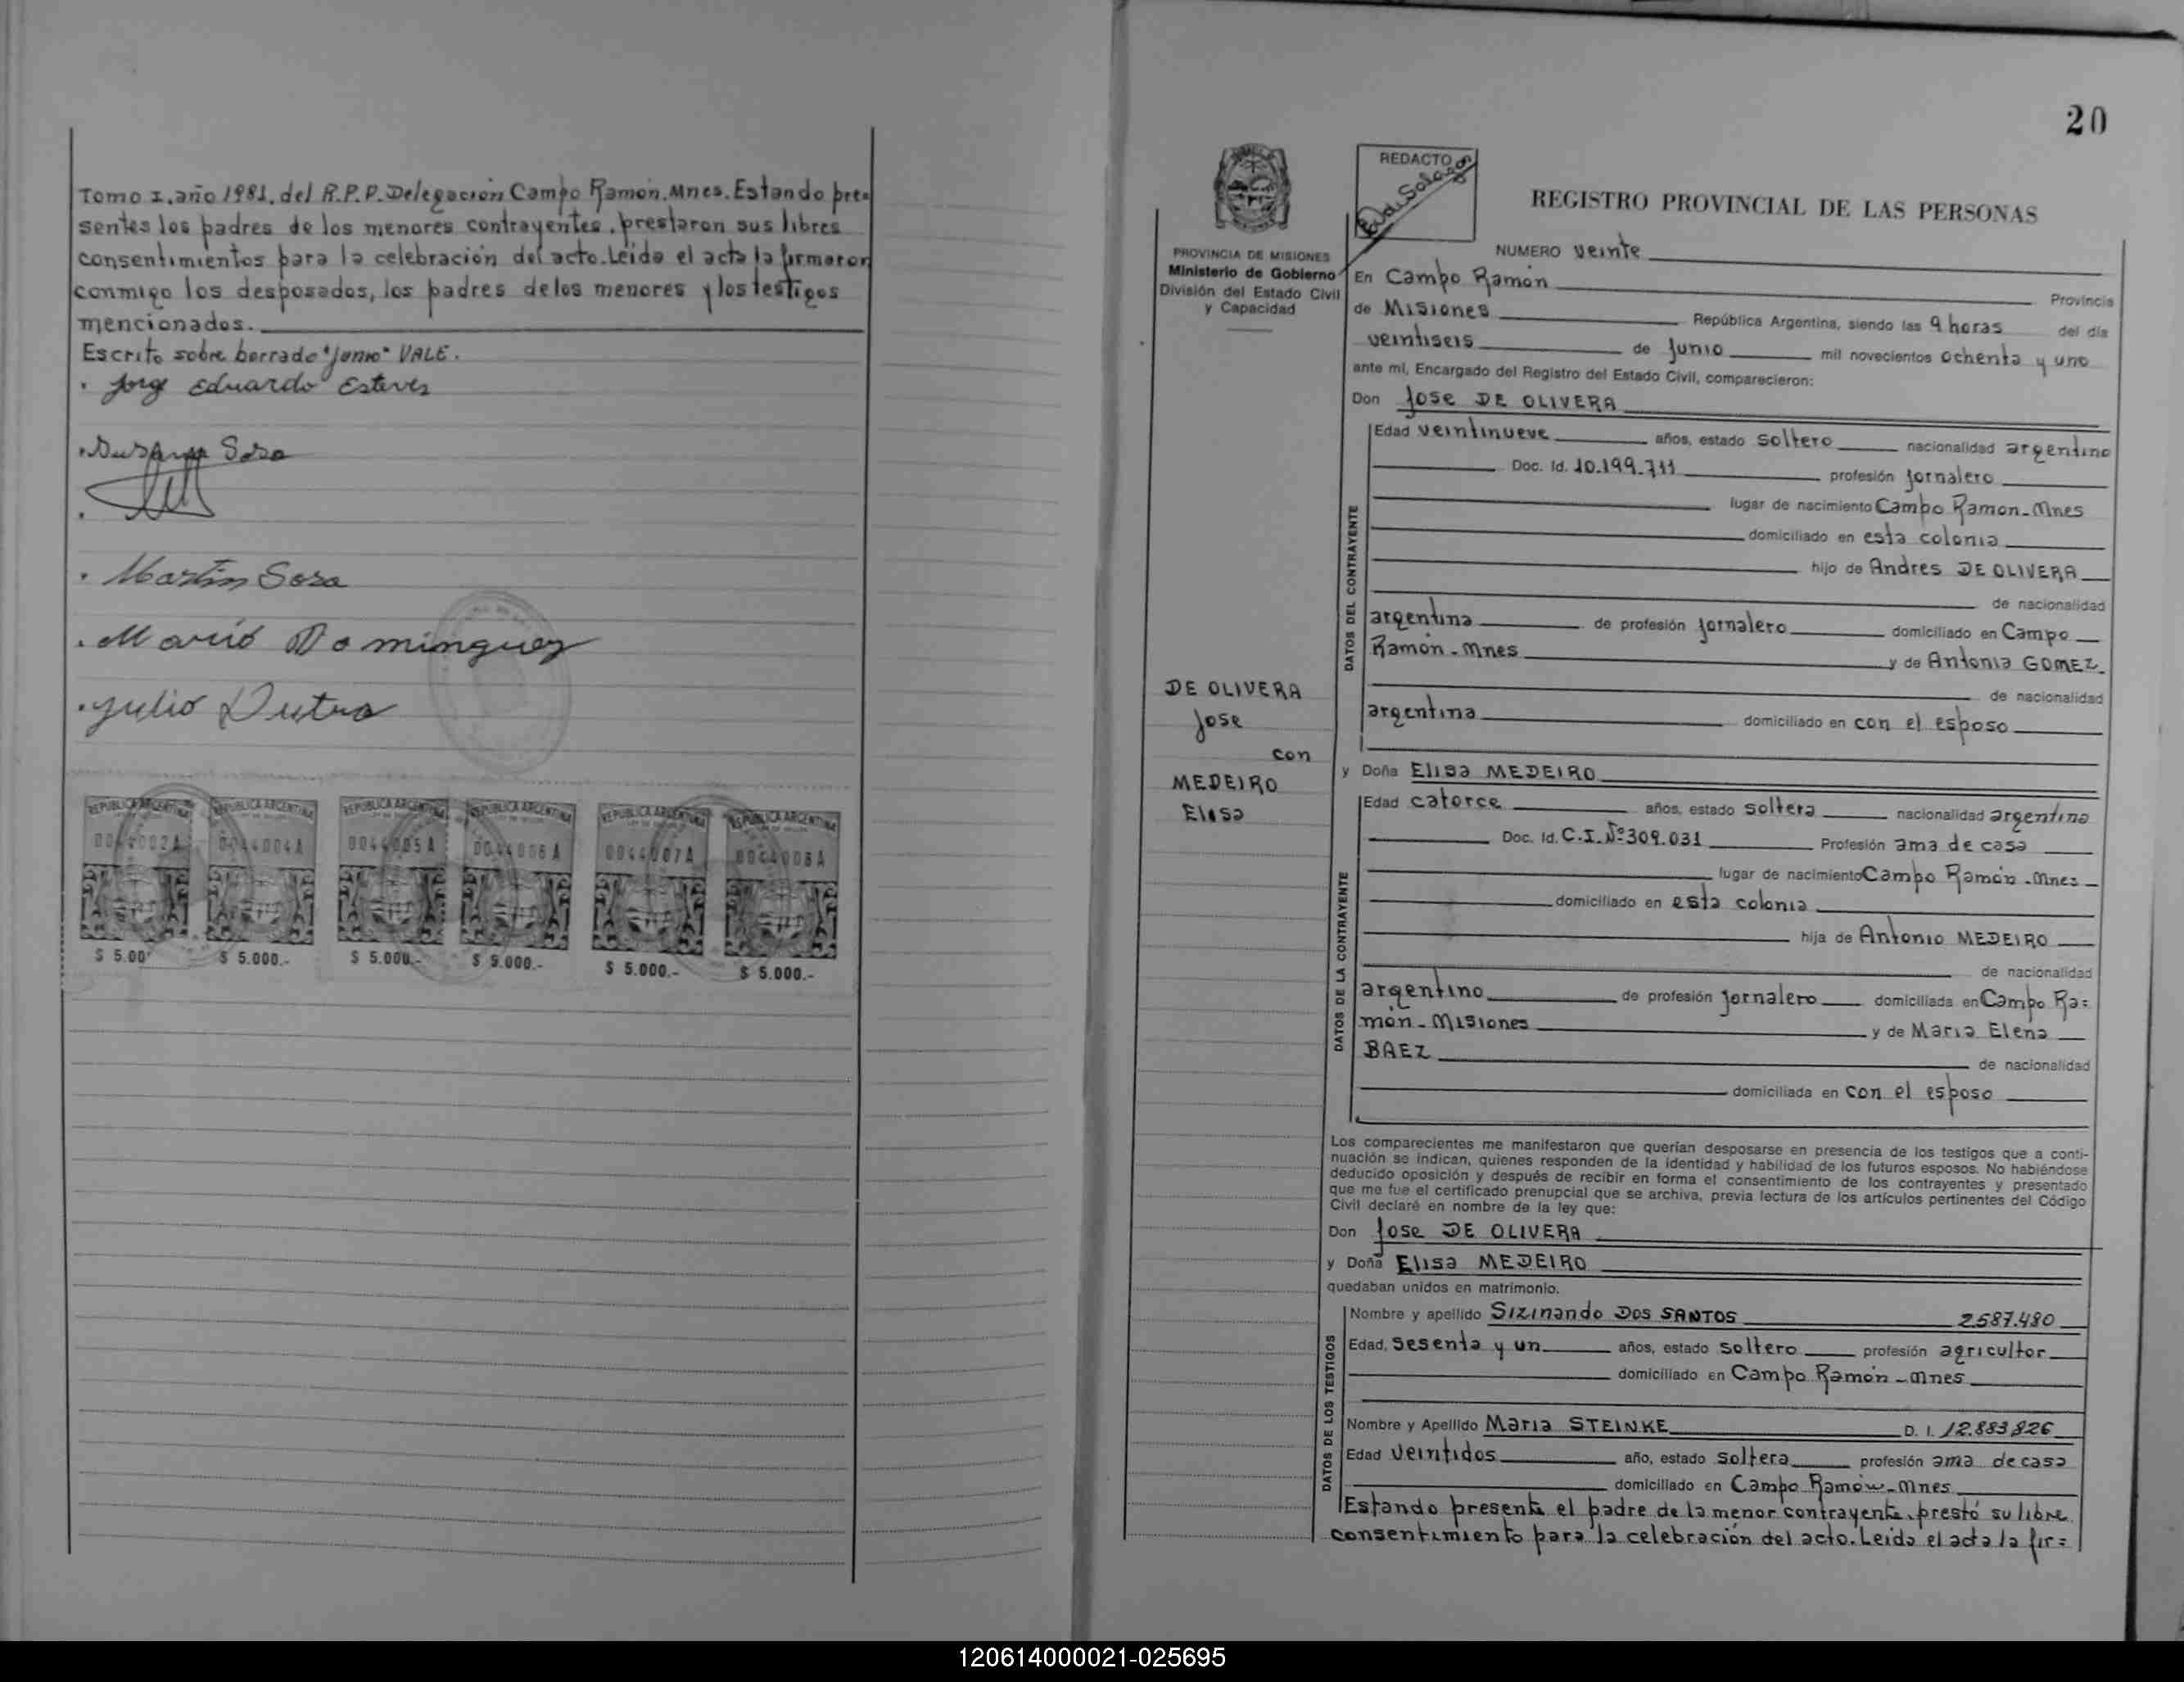 Tomo I. año 1981. del R.P.P. Delegación Campo Ramón. Mnes. Estando pre=
sentes los padres de los menores contrayentes, prestaron sus libres
consentimientos para la celebración del acto. Leida el acta la firmaron
conmigo los desposados, los padres de los menores y los testigos
mencionados.
Escrito sobre borrado "junio" VALE.
Jorge Eduardo Esteves
Susana Sosa
Martin Sosa
Mario Dominguez
Julio Dutra
REPUBLICA ARGENTINA REPUBLICA ARGENTINA REPUBLICA ARGENTINA REPUBLICA ARGENTINA REPUBLICA ARGENTINA REPUBLICA ARGENTINA
0044002A 0044004A 0044005A 0044006A 0044007A 0044008A
$ 5.00 $ 5.000.- $ 5.000.- $ 5.000.- $ 5.000.- $ 5.000.-
20
REDACTO
PROVINCIA DE MISIONES
Ministerio de Gobierno
División del Estado Civil
y Capacidad
REGISTRO PROVINCIAL DE LAS PERSONAS
NUMERO veinte
En Campo Ramón Provincia
de Misiones República Argentina, siendo las 9 horas del día
veintiseis de junio mil novecientos ochenta y uno
ante mi, Encargado del Registro del Estado Civil, comparecieron:
Don Jose DE OLIVERA
DATOS DEL CONTRAYENTE
Edad veintinueve años, estado soltero nacionalidad argentino
Doc. Id. 10.199.711 profesión jornalero
lugar de nacimiento Campo Ramon-Mnes
domiciliado en esta colonia
hijo de Andres DE OLIVERA
de nacionalidad
argentina de profesión jornalero domiciliado en Campo
Ramón-Mnes y de Antonia GOMEZ
de nacionalidad
argentina domiciliado en con el esposo
DE OLIVERA
Jose
con
MEDEIRO
Elisa
y Doña Elisa MEDEIRO
DATOS DE LA CONTRAYENTE
Edad catorce años, estado soltera nacionalidad argentina
Doc. Id. C.I. Nº 309.031 Profesión ama de casa
lugar de nacimiento Campo Ramón-Mnes
domiciliado en esta colonia
hija de Antonio MEDEIRO
de nacionalidad
argentino de profesión jornalero domiciliada en Campo Ra=
món-Misiones y de Maria Elena
BAEZ de nacionalidad
domiciliada en con el esposo
Los comparecientes me manifestaron que querían desposarse en presencia de los testigos que a conti-
nuación se indican, quienes responden de la identidad y habilidad de los futuros esposos. No habiéndose
deducido oposición y después de recibir en forma el consentimiento de los contrayentes y presentado
que me fue el certificado prenupcial que se archiva, previa lectura de los artículos pertinentes del Código
Civil declaré en nombre de la ley que:
Don Jose DE OLIVERA
y Doña Elisa MEDEIRO
quedaban unidos en matrimonio.
DATOS DE LOS TESTIGOS
Nombre y apellido Sizinando DOS SANTOS 2.587.480
Edad, sesenta y un años, estado soltero profesión agricultor
domiciliado en Campo Ramón-Mnes
Nombre y Apellido Maria STEINKE D. I. 12.883.826
Edad veintidos año, estado soltera profesión ama de casa
domiciliado en Campo Ramón-Mnes
Estando presente el padre de la menor contrayente, prestó su libre
consentimiento para la celebración del acto. Leida el acta la fir=
120614000021-025695